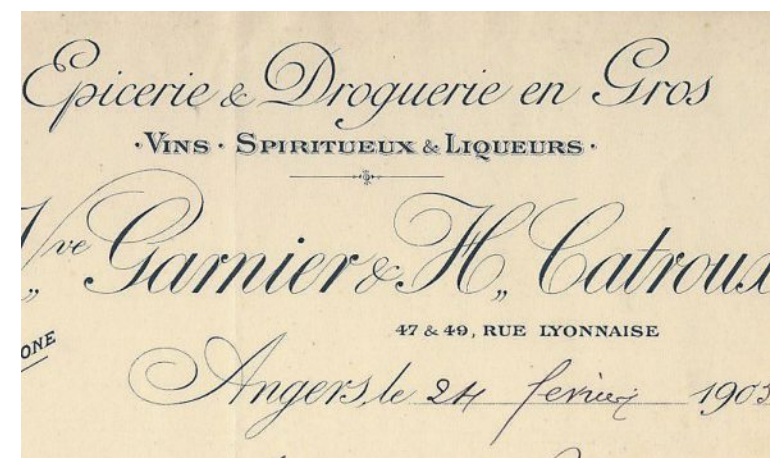 Epicerie & Droguerie en Gros
·VINS · SPIRITUEUX & LIQUEURS·
Vve Garnier & H,, Catroux
47 & 49, RUE LYONNAISE
ONE
Angers, le 24 fevrier 190